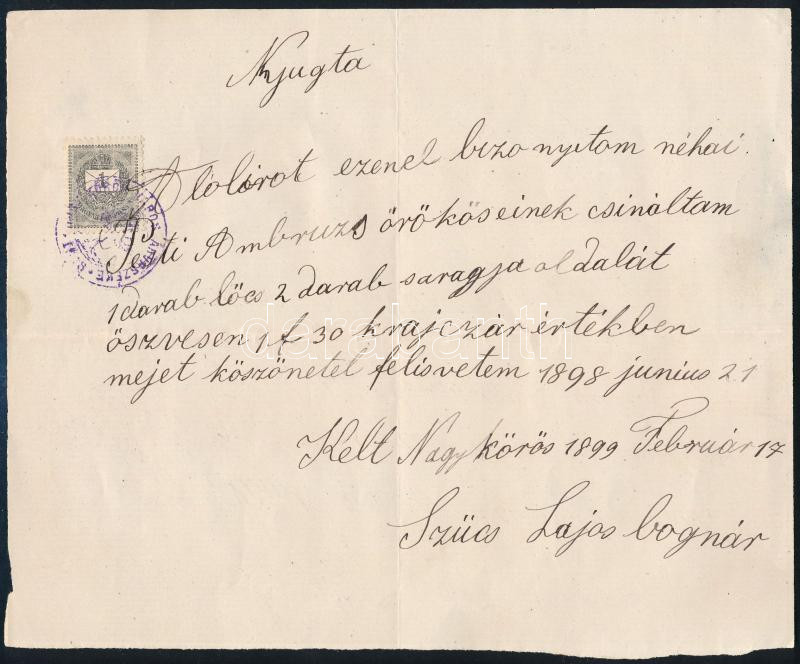 Nyugta
Alólirot ezenel bizonyitom néhai
Pesti Ambruzs örököseinek csináltam
1 darab löcs 2 darab saragja oldalát
öszvesen 1 f 30 krajczár értékben
mejet köszönetel felisvetem 1898 junius 21
Kelt Nagykörös 1899 Február 17
Szücs Lajos bognár
darabanth